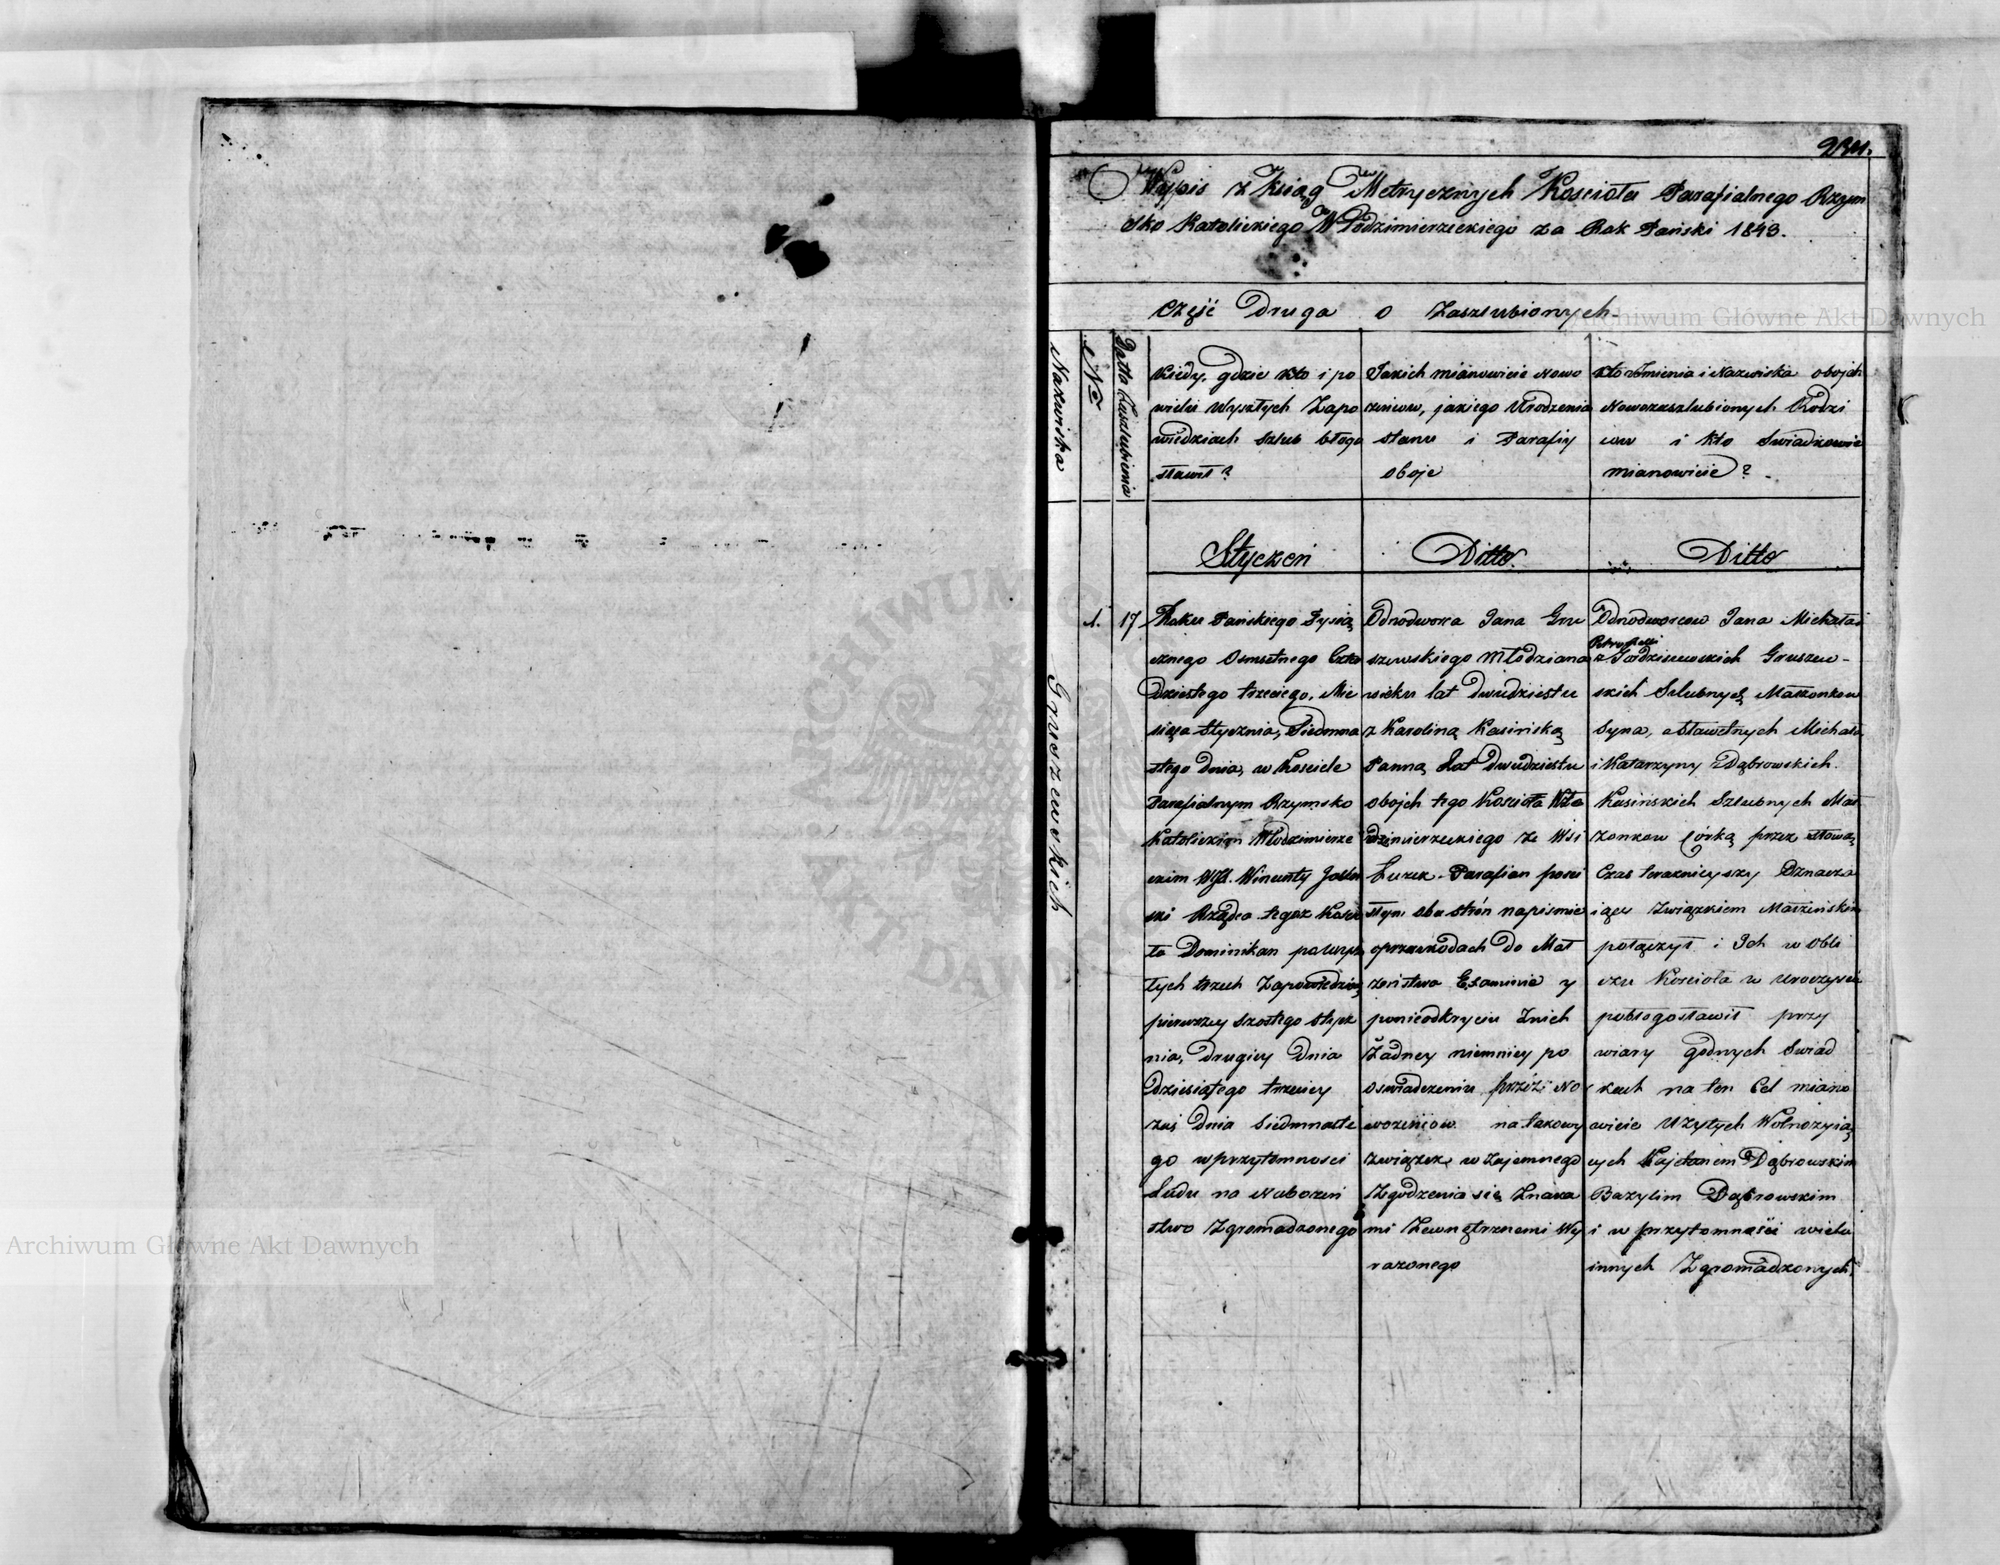 234.
Wypis z Xiąg Metrycznych Kościoła Parafialnego Rzym
sko Katolickiego Włodzimierzeckiego za Rok Pański 1843.
Część Druga o Zaszlubionych
Archiwum Główne Akt Dawnych
Nazwiska
№
Datta Zaszlubienia
Kiedy, gdzie kto i po
wielu wyszłych Zapo
wiedziach szlub błogo
sławił?
Jakich mianowicie Nowo
żeńców, jakiego Urodzenia
stanu i Parafiy
oboje
Kto Imienia i Nazwiska obojch
Nowozaszlubionych Rodzi
ców i kto Swiadkowie
mianowicie?
Styczeń
Ditto.
Ditto
Gruszewskich
1.
17
Roku Pańskiego Tysią
cznego Osmsetnego Czter
dziestego trzeciego, Mie
siąca Stycznia, Siedmna
stego Dnia, w Kosciele
Parafialnym Rzymsko
Katolickim Włodzimierze
ckim WJX. Wincenty
ski Rządca tegoż Kościo
ła Dominikan po wysz
łych trzech Zapowiedziach
pierwszey szostego stycz
nia, drugiey Dnia
Dziesiątego trzeciey
zaś Dnia Siedmnaste
go w przytomnosci
Ludu na Nabożeń
stwo Zgromadzonego
Odnodworca Jana Gru
szewskiego Młodziana
wieku lat dwudziestu
z Karoliną Kasińską
Panną Lat Dwudziestu
obojch tego Kościoła Wło
dzimierzeckiego ze Wsi
Parafian
obu strón napismie
oprzeszkodach do Mał
żeństwa Examinie y
ponieodkryciu Znich
Żadney niemniey po
oswiadczeniu przez No
wożeńców na takowy
związek wzajemnego
Zgodzenia się Znaka
mi Zewnętrznemi Wy
rażonego
Odnodworcow Jana Michała
Gruszew-
skich Szlubnych Małżonkow
Syna, a Sławetnych Michała
i Katarzyny z Dąbrowskich
Kasińskich Szlubnych Mał
żonkow Córką przez słowa
Czas teraznieyszy Oznacza
iące Związkiem Małżeńskim
połączył i Ich w Obli
czu Kościoła w Uroczyscie
pobłogosławił przy
wiary godnych Swiad
kach na ten Cel miano
wicie Użytych Wolnożyią
cych Kajetanem Dąbrowskim
Bazylim Dąbrowskim
i w przytomności wielu
innych Zgromadzonych.
Archiwum Główne Akt Dawnych
ARCHIWUM GŁÓWNE AKT DAWNYCH